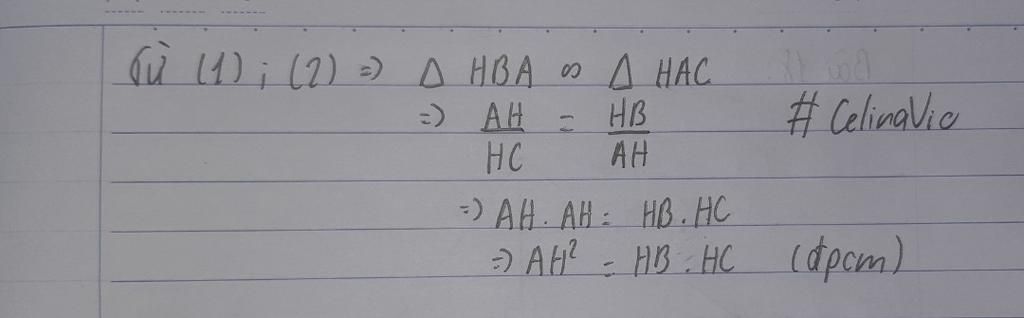 Từ (1) ; (2) => Δ HBA ∽ Δ HAC
=> AH/HC = HB/AH # CelinaVic
=> AH . AH = HB . HC
=> AH² = HB . HC (đpcm)